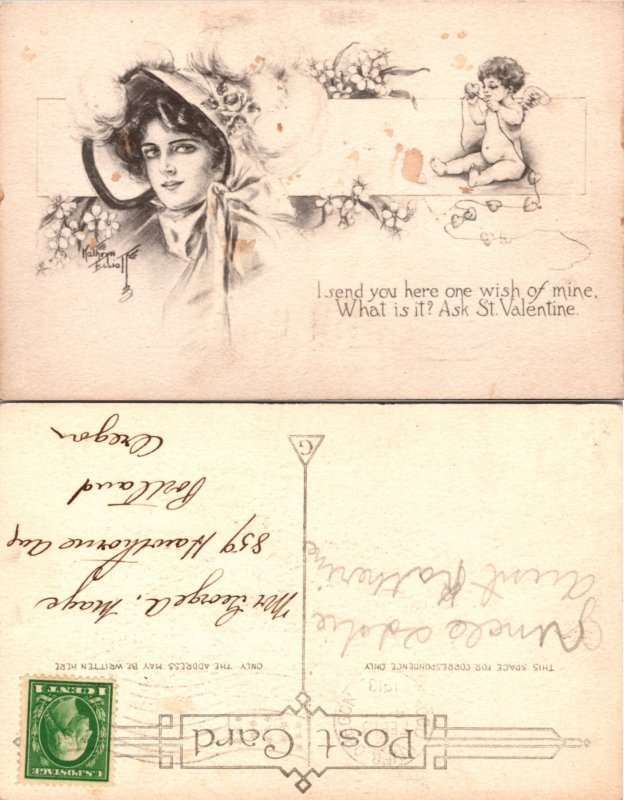 Kathryn
Elliott
I send you here one wish of mine,
What is it? Ask St. Valentine.
U.S. POSTAGE
1 CENT 1
Post Card
1913
THIS SPACE FOR CORRESPONDENCE ONLY
ONLY THE ADDRESS MAY BE WRITTEN HERE
Uncle Eddie
Aunt Katherine
Mr George A.
859 Hawthorne Ave
Portland
Oregon
G